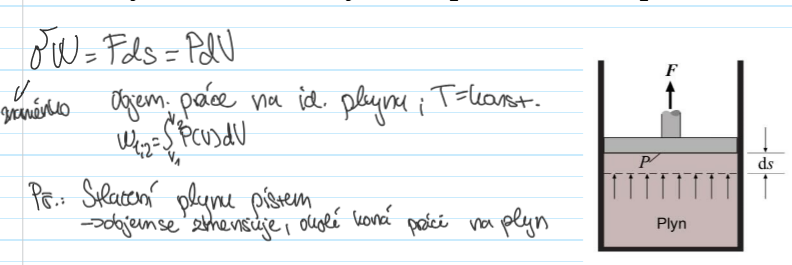 δW = Fds = PdV
znaménko
objem. práce na id. plynu ; T=konst.
W₁,₂=∫P(V)dV
V₂
V₁
Př.: Stlačení plynu pístem
→objem se zmenšuje, okolí koná práci na plyn
F
P
ds
Plyn